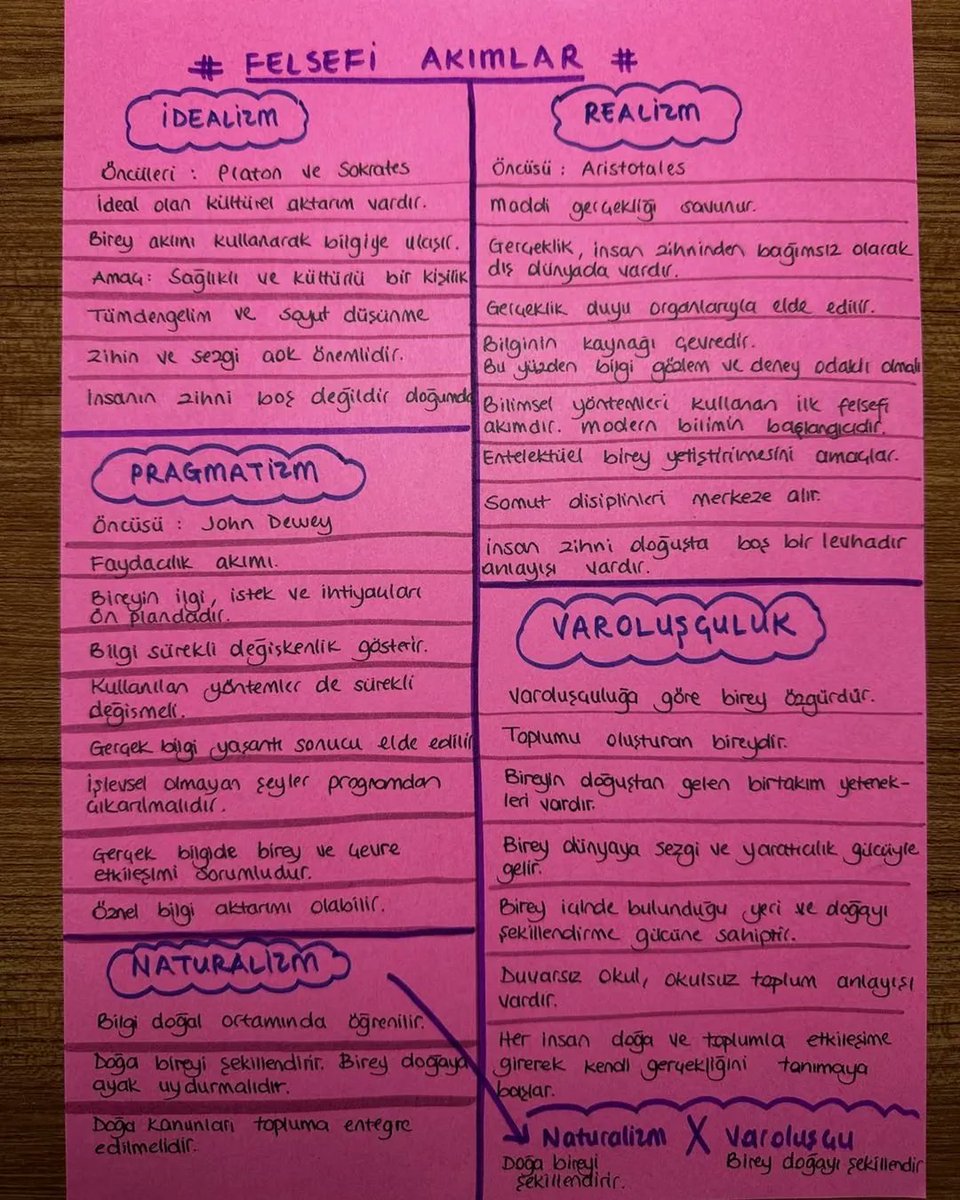 # FELSEFİ AKIMLAR #
İDEALİZM
Öncüleri : Platon ve Sokrates
İdeal olan kültürel aktarım vardır.
Birey aklını kullanarak bilgiye ulaşır.
Amaç: Sağlıklı ve kültürlü bir kişilik
Tümdengelim ve soyut düşünme
Zihin ve sezgi çok önemlidir.
İnsanın zihni boş değildir doğumda
PRAGMATİZM
Öncüsü : John Dewey
Faydacılık akımı.
Bireyin ilgi, istek ve ihtiyaçları
ön plandadır.
Bilgi sürekli değişkenlik gösterir.
Kullanılan yöntemler de sürekli
değişmeli.
Gerçek bilgi yaşantı sonucu elde edilir
İşlevsel olmayan şeyler programdan
çıkarılmalıdır.
Gerçek bilgide birey ve çevre
etkileşimi sorumludur.
Öznel bilgi aktarımı olabilir.
NATURALİZM
Bilgi doğal ortamında öğrenilir.
Doğa bireyi şekillendirir. Birey doğaya
ayak uydurmalıdır.
Doğa kanunları topluma entegre
edilmelidir.
REALİZM
Öncüsü : Aristotales
Maddi gerçekliği savunur.
Gerçeklik, insan zihninden bağımsız olarak
dış dünyada vardır.
Gerçeklik duyu organlarıyla elde edilir.
Bilginin kaynağı çevredir.
Bu yüzden bilgi gözlem ve deney odaklı olmalı
Bilimsel yöntemleri kullanan ilk felsefi
akımdır. Modern bilimin başlangıcıdır.
Entelektüel birey yetiştirilmesini amaçlar.
Somut disiplinleri merkeze alır.
İnsan zihni doğuşta boş bir levhadır
anlayışı vardır.
VAROLUŞÇULUK
Varoluşçuluğa göre birey özgürdür.
Toplumu oluşturan bireydir.
Bireyin doğuştan gelen birtakım yetenek-
leri vardır.
Birey dünyaya sezgi ve yaratıcılık gücüyle
gelir.
Birey içinde bulunduğu yeri ve doğayı
şekillendirme gücüne sahiptir.
Duvarsız okul, okulsuz toplum anlayışı
vardır.
Her insan doğa ve toplumla etkileşime
girerek kendi gerçekliğini tanımaya
başlar.
Naturalizm X Varoluşçu
Doğa bireyi
şekillendirir.
Birey doğayı şekillendir